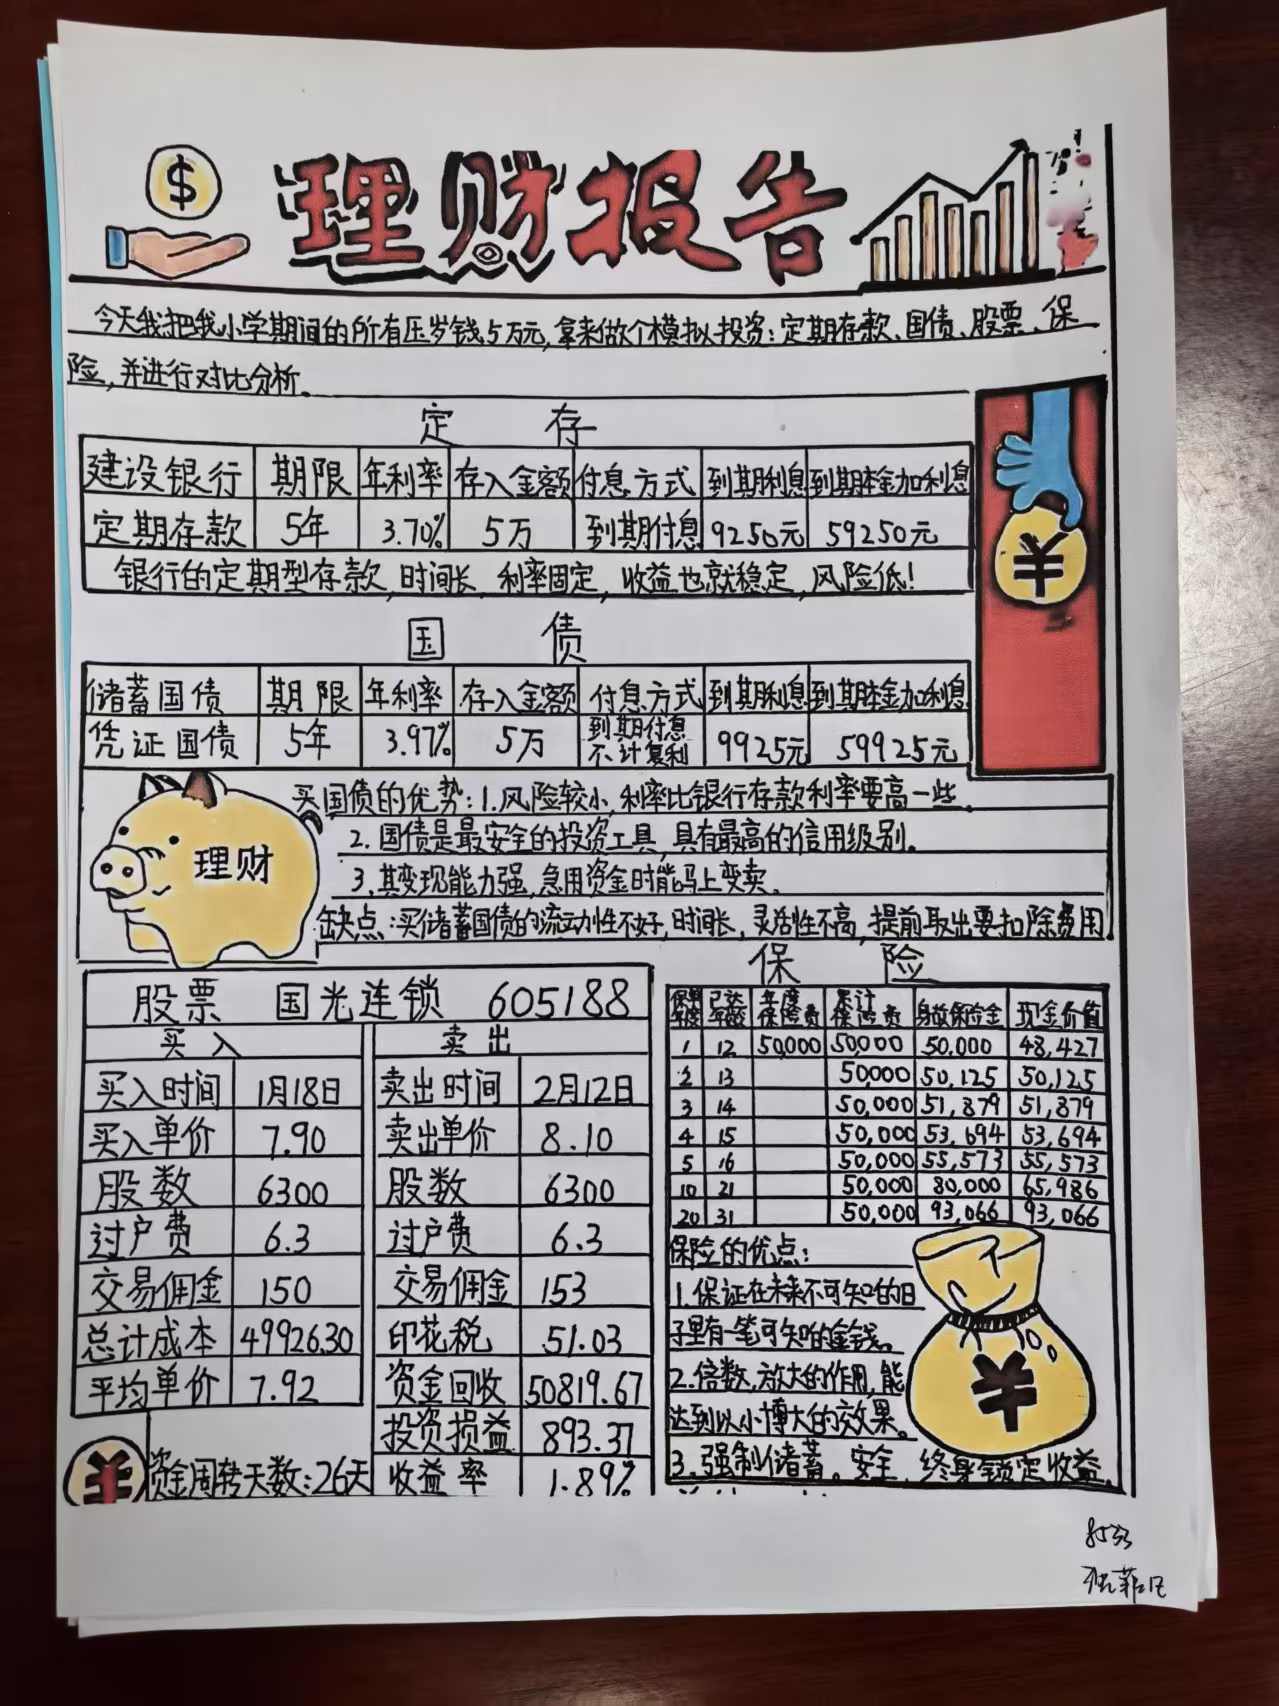 $
理财报告
今天我把我小学期间的所有压岁钱5万元,拿来做个模拟投资:定期存款、国债、股票、保
险,并进行对比分析。
定 存
建设银行 期限 年利率 存入金额 付息方式 到期利息 到期本金加利息
定期存款 5年 3.70% 5万 到期付息 9250元 59250元
银行的定期型存款,时间长,利率固定,收益也就稳定,风险低!
¥
国 债
储蓄国债 期限 年利率 存入金额 付息方式 到期利息 到期本金加利息
凭证国债 5年 3.97% 5万 到期付息 不计复利 9925元 59925元
理财
买国债的优势:1.风险较小,利率比银行存款利率要高一些。
2.国债是最安全的投资工具,具有最高的信用级别。
3.其变现能力强,急用资金时能马上变卖。
缺点:买储蓄国债的流动性不好,时间长,灵活性不高,提前取出要扣除费用
股票 国光连锁 605188
买入 卖出
买入时间 1月18日 卖出时间 2月12日
买入单价 7.90 卖出单价 8.10
股数 6300 股数 6300
过户费 6.3 过户费 6.3
交易佣金 150 交易佣金 153
总计成本 49926.30 印花税 51.03
平均单价 7.92 资金回收 50819.67
投资损益 893.37
¥
资金周转天数:26天 收益率 1.89%
保 险
年度保险费 累计保险费 身故保险金 现金价值
1 12 50,000 50,000 50,000 48,427
2 13 50,000 50,125 50,125
3 14 50,000 51,879 51,879
4 15 50,000 53,694 53,694
5 16 50,000 55,573 55,573
10 21 50,000 80,000 65,986
20 31 50,000 93,066 93,066
保险的优点:
1.保证在未来不可知的日
子里有一笔可知的金钱。
2.倍数,放大的作用,能
达到以小博大的效果。
3.强制储蓄。安全,终身锁定收益。
¥